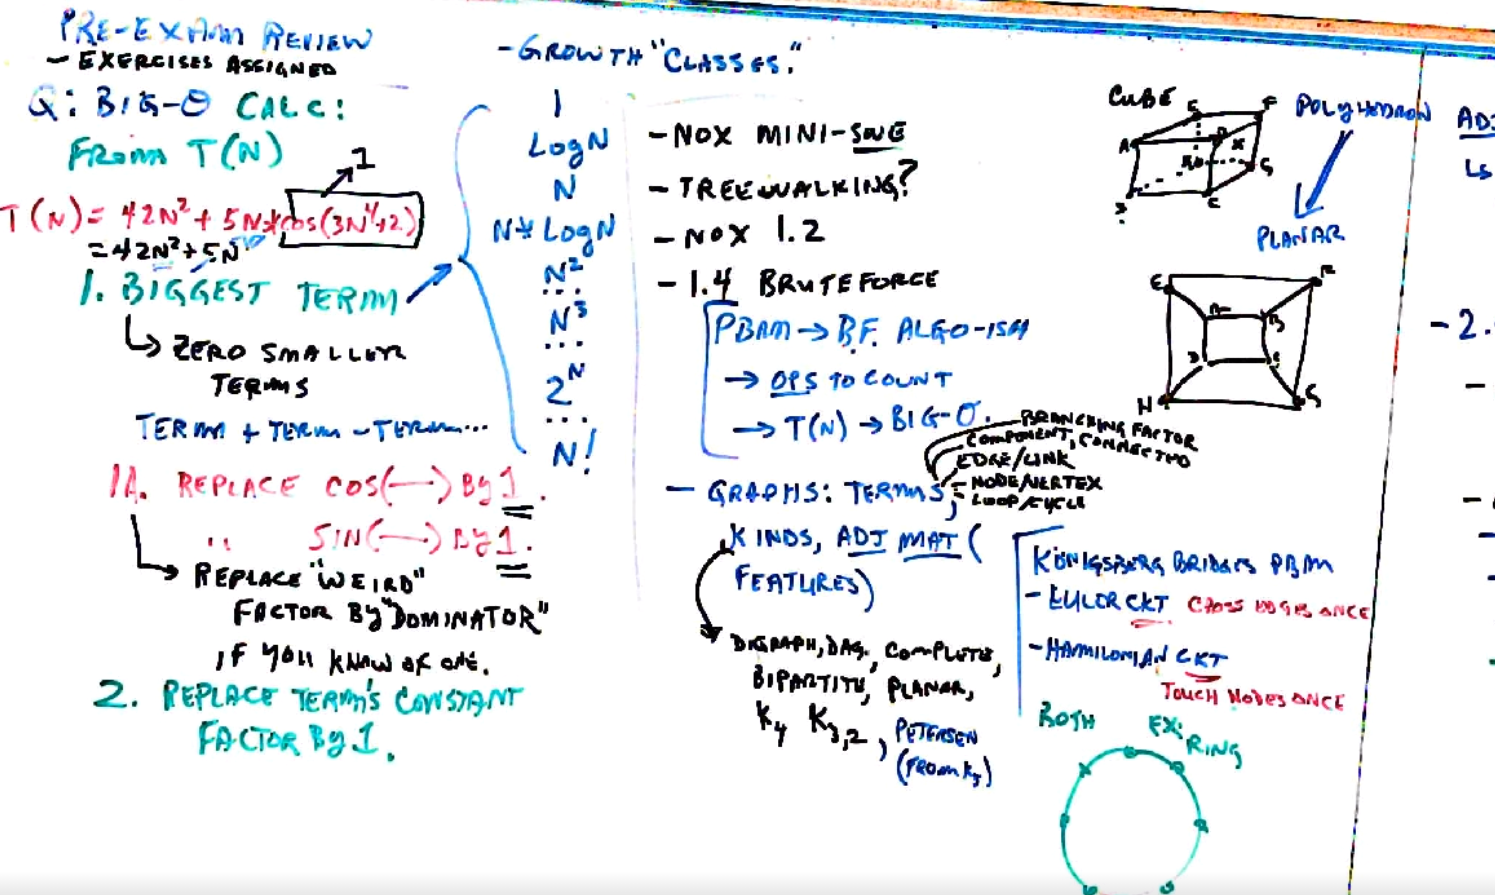 PRE-EXAM REVIEW
- EXERCISES ASSIGNED
Q: BIG-O CALC:
FROM T(N)
1
T(N) = 42N² + 5N*cos(3N⁴+2)
= 42N² + 5N
1. BIGGEST TERM
ZERO SMALLER
TERMS
TERM + TERM - TERM...
1A. REPLACE COS(—) By 1.
" SIN(—) By 1.
REPLACE "WEIRD"
FACTOR BY "DOMINATOR"
IF YOU KNOW OF ONE.
2. REPLACE TERM'S CONSTANT
FACTOR By 1.
- GROWTH "CLASSES."
1
LogN
N
N* LogN
N²
...
N³
...
2ᴺ
...
N!
- NOX MINI-SWE
- TREEWALKING?
- NOX 1.2
- 1.4 BRUTEFORCE
PBAM → B.F. ALGO-ISH
→ OPS TO COUNT
→ T(N) → BIG-O.
- GRAPHS: TERMS,
BRANCHING FACTOR
COMPONENT, CONNECTED
EDGE/LINK
NODE/VERTEX
LOOP/CYCLE
KINDS, ADJ MAT (
FEATURES)
DIGRAPH, DAG, COMPLETE,
BIPARTITE, PLANAR,
K4 K3,2, PETERSEN
(FROM K5)
KÖNIGSBERG BRIDGES PBM
- EULOR CKT CROSS EDGES ONCE
- HAMILONIAN CKT
TOUCH NODES ONCE
BOTH EX: RING
CUBE
E F
A B
G
C
POLYHEDRON
PLANAR
E F
A B
D C
H G
ADJ
LS
- 2.